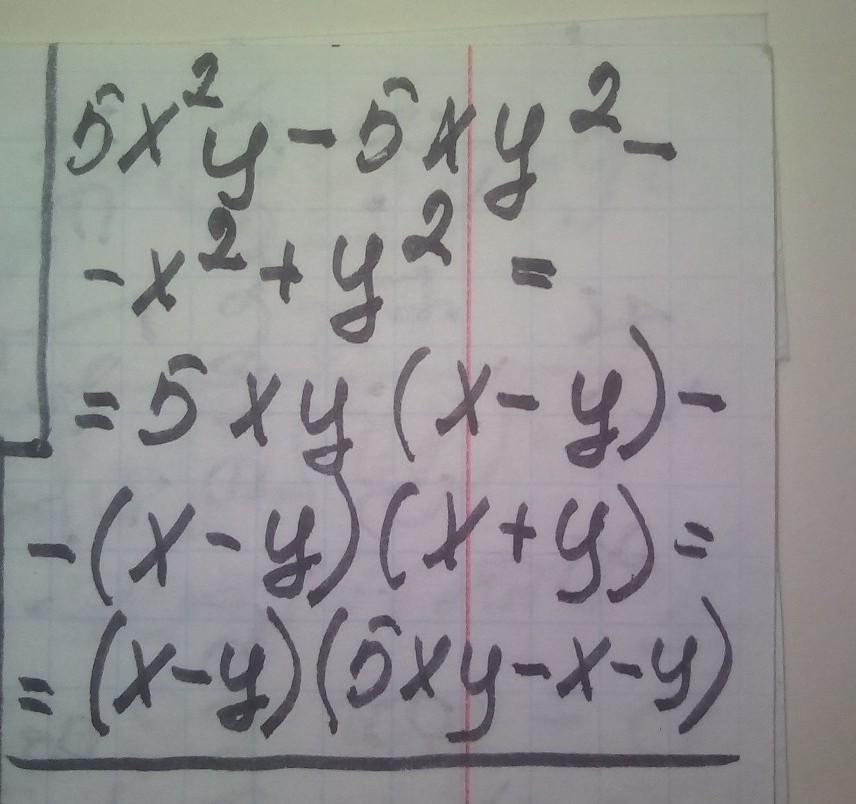 5x²y - 5xy² -
- x² + y² =
= 5xy(x - y) -
- (x - y)(x + y) =
= (x - y)(5xy - x - y)